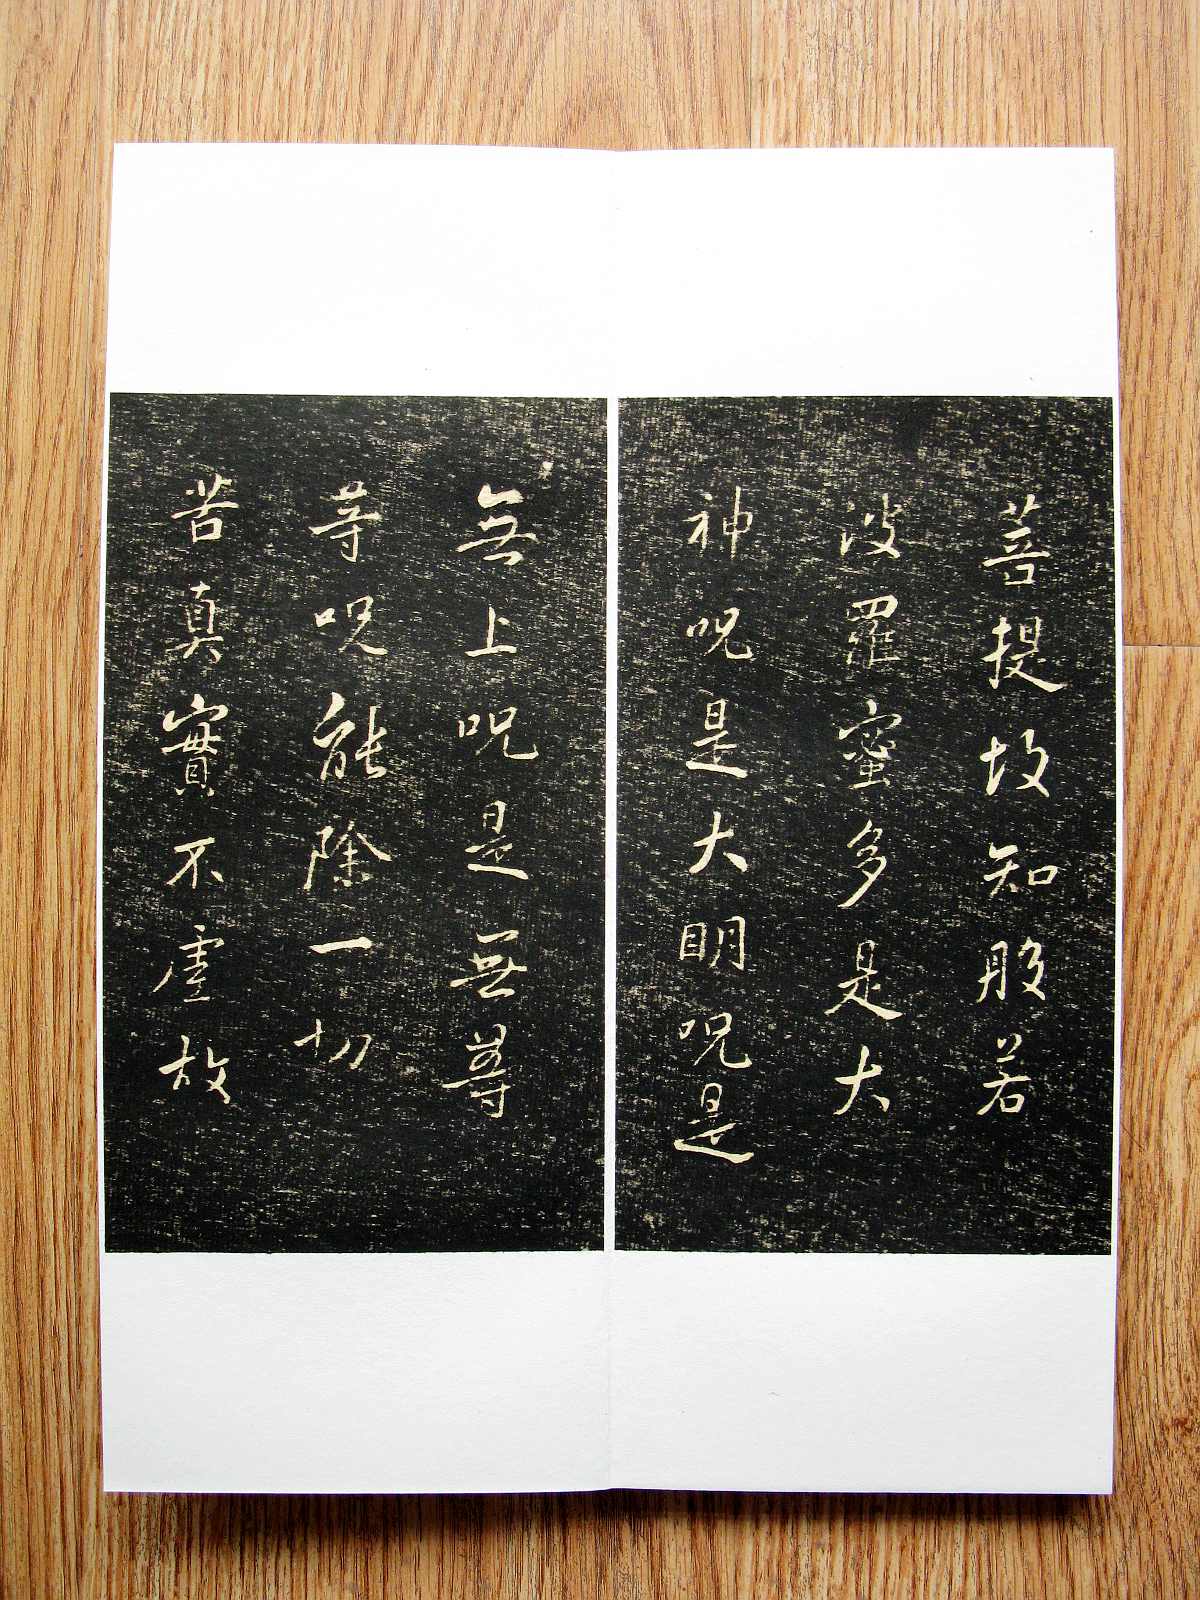 菩提故知般若
波羅蜜多是大
神呪是大明呪是
無上呪是無等
等呪能除一切
苦真實不虛故